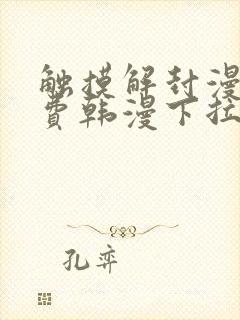 触摸解封漫
费韩漫下拉
孔弈